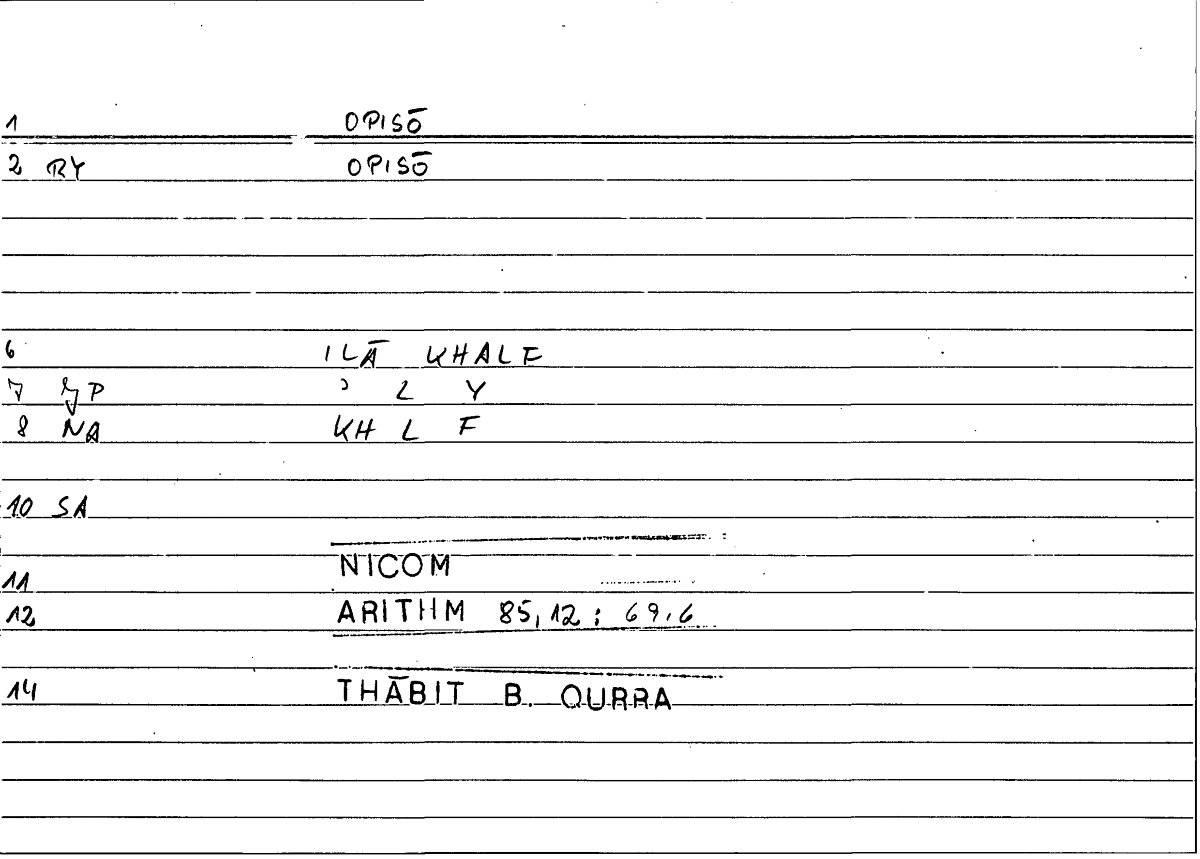 1 OPISŌ
2 RY OPISŌ
6 ILĀ KHALF
7 JP ʾ L Y
8 NA KH L F
10 SA
11 NICOM
12 ARITHM 85,12 ; 69,6
14 THĀBIT B. QURRA